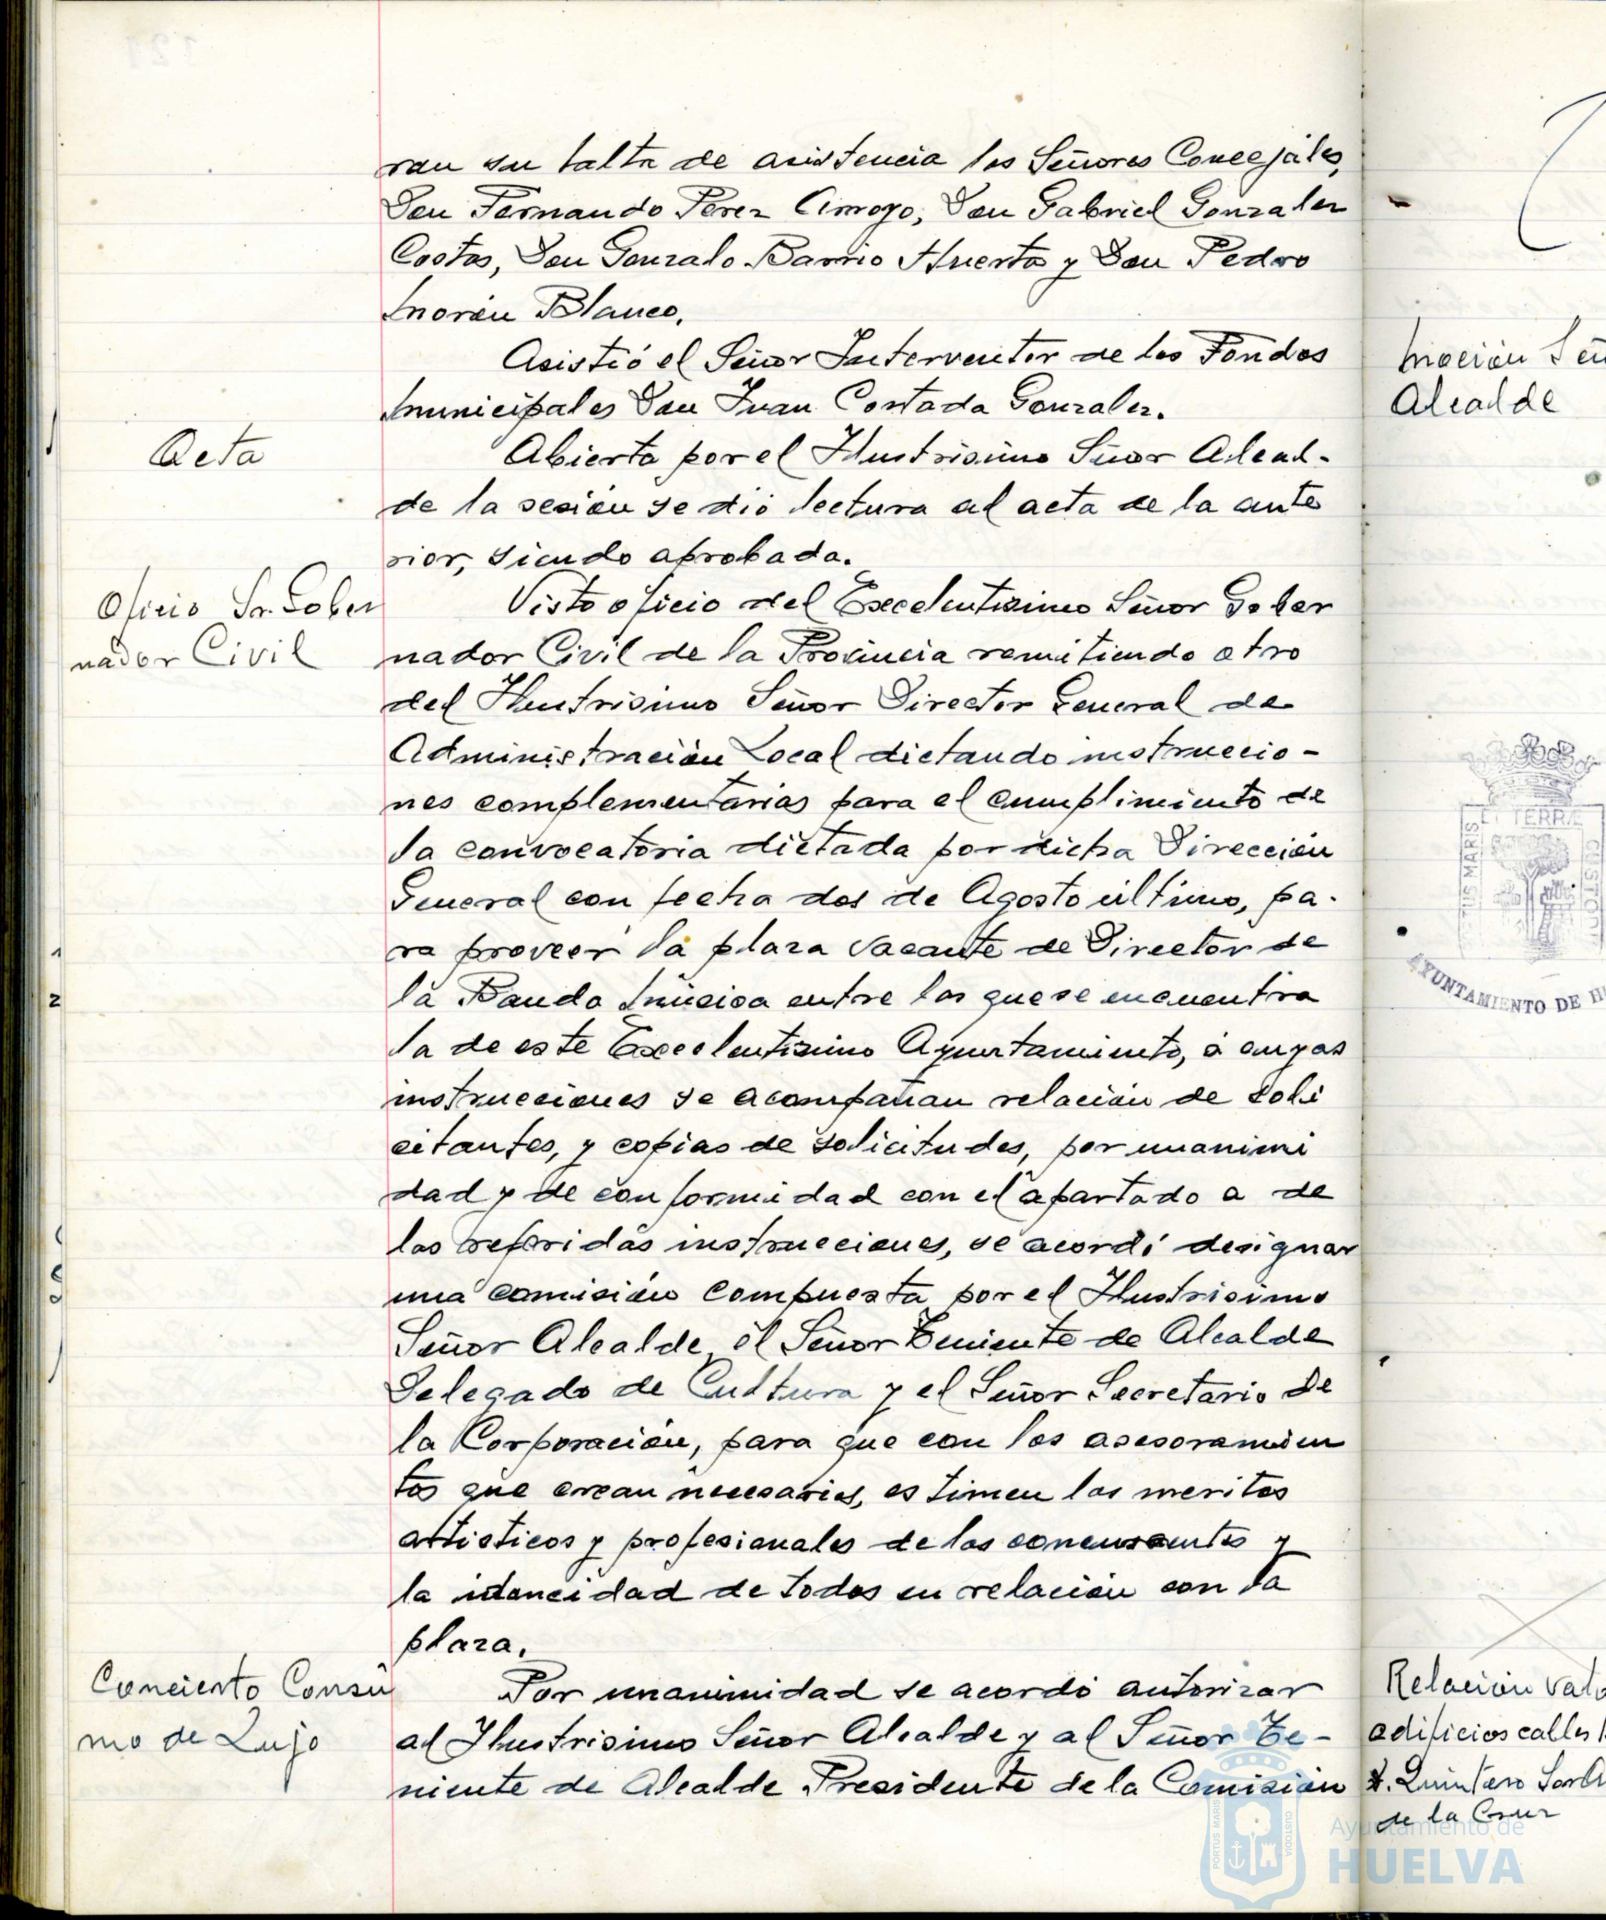 ran su falta de asistencia los Señores Concejales,
Don Fernando Perez Arroyo, Don Gabriel Gonzalez
Costas, Don Gonzalo Barrio Huerta y Don Pedro
Morón Blanco.
Asistió el Señor Interventor de los Fondos
Municipales Don Juan Costada Gonzalez.
Acta
Abierta por el Ilustrisimo Señor Alcal-
de la sesión se dió lectura al acta de la ante
rior, siendo aprobada.
Oficio Sr. Gober
nador Civil
Visto oficio del Excelentisimo Señor Gober
nador Civil de la Provincia remitiendo otro
del Ilustrisimo Señor Director General de
Administración Local dictando instruccio-
nes complementarias para el cumplimiento de
la convocatoria dictada por dicha Dirección
General con fecha dos de Agosto último, pa-
ra proveer la plaza vacante de Director de
la Banda Música entre las que se encuentra
la de este Excelentisimo Ayuntamiento, á cuyas
instrucciones se acompañan relación de soli
citantes, y copias de solicitudes, por unanimi
dad y de conformidad con el apartado a de
las referidas instrucciones, se acordó designar
una comisión compuesta por el Ilustrisimo
Señor Alcalde, el Señor Teniente de Alcalde
Delegado de Cultura y el Señor Secretario de
la Corporación, para que con los asesoramien
tos que crean necesarios, estimen los meritos
artisticos y profesionales de los concursantes y
la idoneidad de todos en relación con la
plaza.
Concierto Consu
mo de Lujo
Por unanimidad se acordó autorizar
al Ilustrisimo Señor Alcalde y al Señor Te-
niente de Alcalde Presidente de la Comisión
Moción Señ
Alcalde
AYUNTAMIENTO DE H
Relación valo
edificios calles
Quintero
de la Cruz
Ayuntamiento de
HUELVA